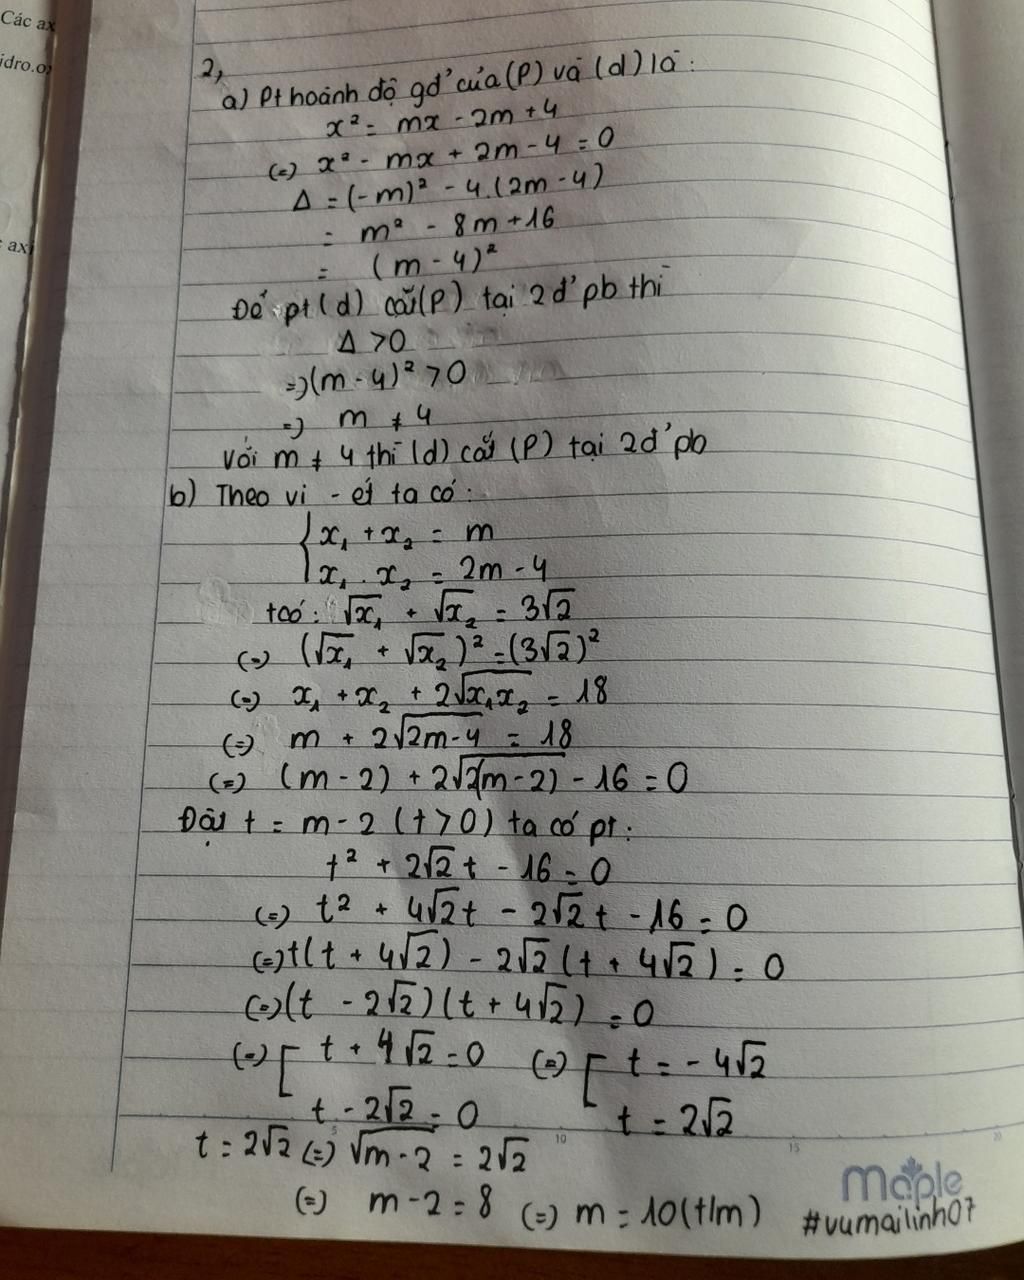 Các ax
idro.o
axi
2,
a) Pt hoành độ gđ' của (P) và (d) là :
x² = mx - 2m + 4
(=) x² - mx + 2m - 4 = 0
Δ = (-m)² - 4.(2m-4)
= m² - 8m + 16
= (m - 4)²
Để pt (d) cắt (P) tại 2đ' pb thì
Δ > 0
=> (m - 4)² > 0
=> m ≠ 4
Với m ≠ 4 thì (d) cắt (P) tại 2đ' pb
b) Theo vi - ét ta có :
{ x₁ + x₂ = m
x₁ . x₂ = 2m - 4
tcó : √x₁ + √x₂ = 3√2
(=) (√x₁ + √x₂)² = (3√2)²
(=) x₁ + x₂ + 2√(x₁x₂) = 18
(=) m + 2√(2m-4) = 18
(=) (m - 2) + 2√(2(m-2)) - 16 = 0
Đặt t = m - 2 (t > 0) ta có pt :
t² + 2√2 t - 16 = 0
(=) t² + 4√2t - 2√2t - 16 = 0
(=) t(t + 4√2) - 2√2(t + 4√2) = 0
(=) (t - 2√2)(t + 4√2) = 0
(=) [ t + 4√2 = 0 (=) [ t = -4√2
t - 2√2 = 0 t = 2√2
5 10 15 20
t = 2√2 (=) √(m-2) = 2√2
(=) m - 2 = 8 (=) m = 10 (t/m)
maple
#vumailinh07